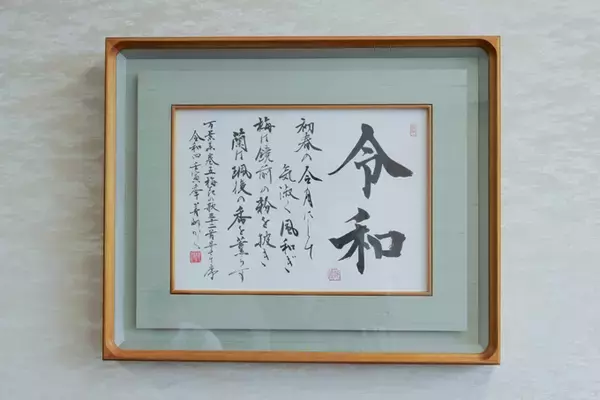 令和
初春の令月にして
気淑く風和ぎ
梅は鏡前の粉を披き
蘭は珮後の香を薫らす
万葉集巻五梅花の歌 序
令和四